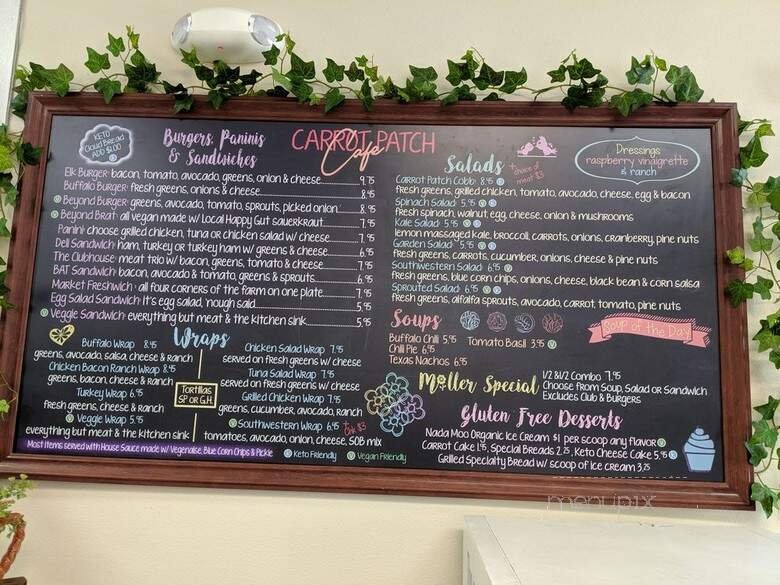 CARROT PATCH
Cafe
KETO
Cloud Bread
ADD $1.00
Burgers, Paninis
& Sandwiches
Elk Burger: bacon, tomato, avocado, greens, onion & cheese 9.75
Buffalo Burger: fresh greens, onions & cheese 8.95
Beyond Burger: greens, avocado, tomato, sprouts, picked onion 8.95
Beyond Brat: all vegan made w/ Local Happy Gut sauerkraut 7.95
Panini: choose grilled chicken, tuna or chicken salad w/ cheese 7.95
Deli Sandwich: ham, turkey or turkey ham w/ greens & cheese 6.95
The Clubhouse: meat trio w/ bacon, greens, tomato & cheese 7.95
BAT Sandwich: bacon, avocado & tomato, greens & sprouts 6.95
Market Freshwich: all four corners of the farm on one plate 7.95
Egg Salad Sandwich: It's egg salad, 'nough said 5.95
Veggie Sandwich: everything but meat & the kitchen sink 5.95
Wraps
Buffalo Wrap 8.95
greens, avocado, salsa, cheese & ranch
Chicken Bacon Ranch Wrap 8.95
greens, bacon, cheese & ranch
Turkey Wrap 6.95
fresh greens, cheese & ranch
Veggie Wrap 5.95
everything but meat & the kitchen sink
Tortillas
SP OR G.H.
Chicken Salad Wrap 7.95
served on fresh greens w/ cheese
Tuna Salad Wrap 7.95
served on fresh greens w/ cheese
Grilled Chicken Wrap 7.95
greens, cucumber, avocado, ranch
Southwestern Wrap 6.95
tomatoes, avocado, onion, cheese, SOB mix
Most items served with House Sauce made w/ Vegenaise, Blue Corn Chips & Pickle
Keto Friendly
Vegan Friendly
Salads
+ choice of
meat $3
Dressings
raspberry vinaigrette
& ranch
Carrot Patch Cobb: 8.95
fresh greens, grilled chicken, tomato, avocado, cheese, egg & bacon
Spinach Salad: 5.95
fresh spinach, walnut, egg, cheese, onion & mushrooms
Kale Salad: 5.95
lemon massaged kale, broccoli, carrots, onions, cranberry, pine nuts
Garden Salad: 5.95
fresh greens, carrots, cucumber, onions, cheese & pine nuts
Southwestern Salad: 6.95
fresh greens, blue corn chips, onions, cheese, black bean & corn salsa
Sprouted Salad: 6.95
fresh greens, alfalfa sprouts, avocado, carrot, tomato, pine nuts
Soups
Soup of the Day
Buffalo Chili 5.95 Tomato Basil 3.95
Chili Pie 6.95
Texas Nachos 6.95
Moller Special
1/2 & 1/2 Combo 7.95
Choose from Soup, Salad or Sandwich
Excludes Club & Burgers
Gluten Free Desserts
Nada Moo Organic Ice Cream $1 per scoop any flavor
Carrot Cake 1.95, Special Breads 2.25, Keto Cheese Cake 5.95
Grilled Specialty Bread w/ scoop of ice cream 3.25
menupix